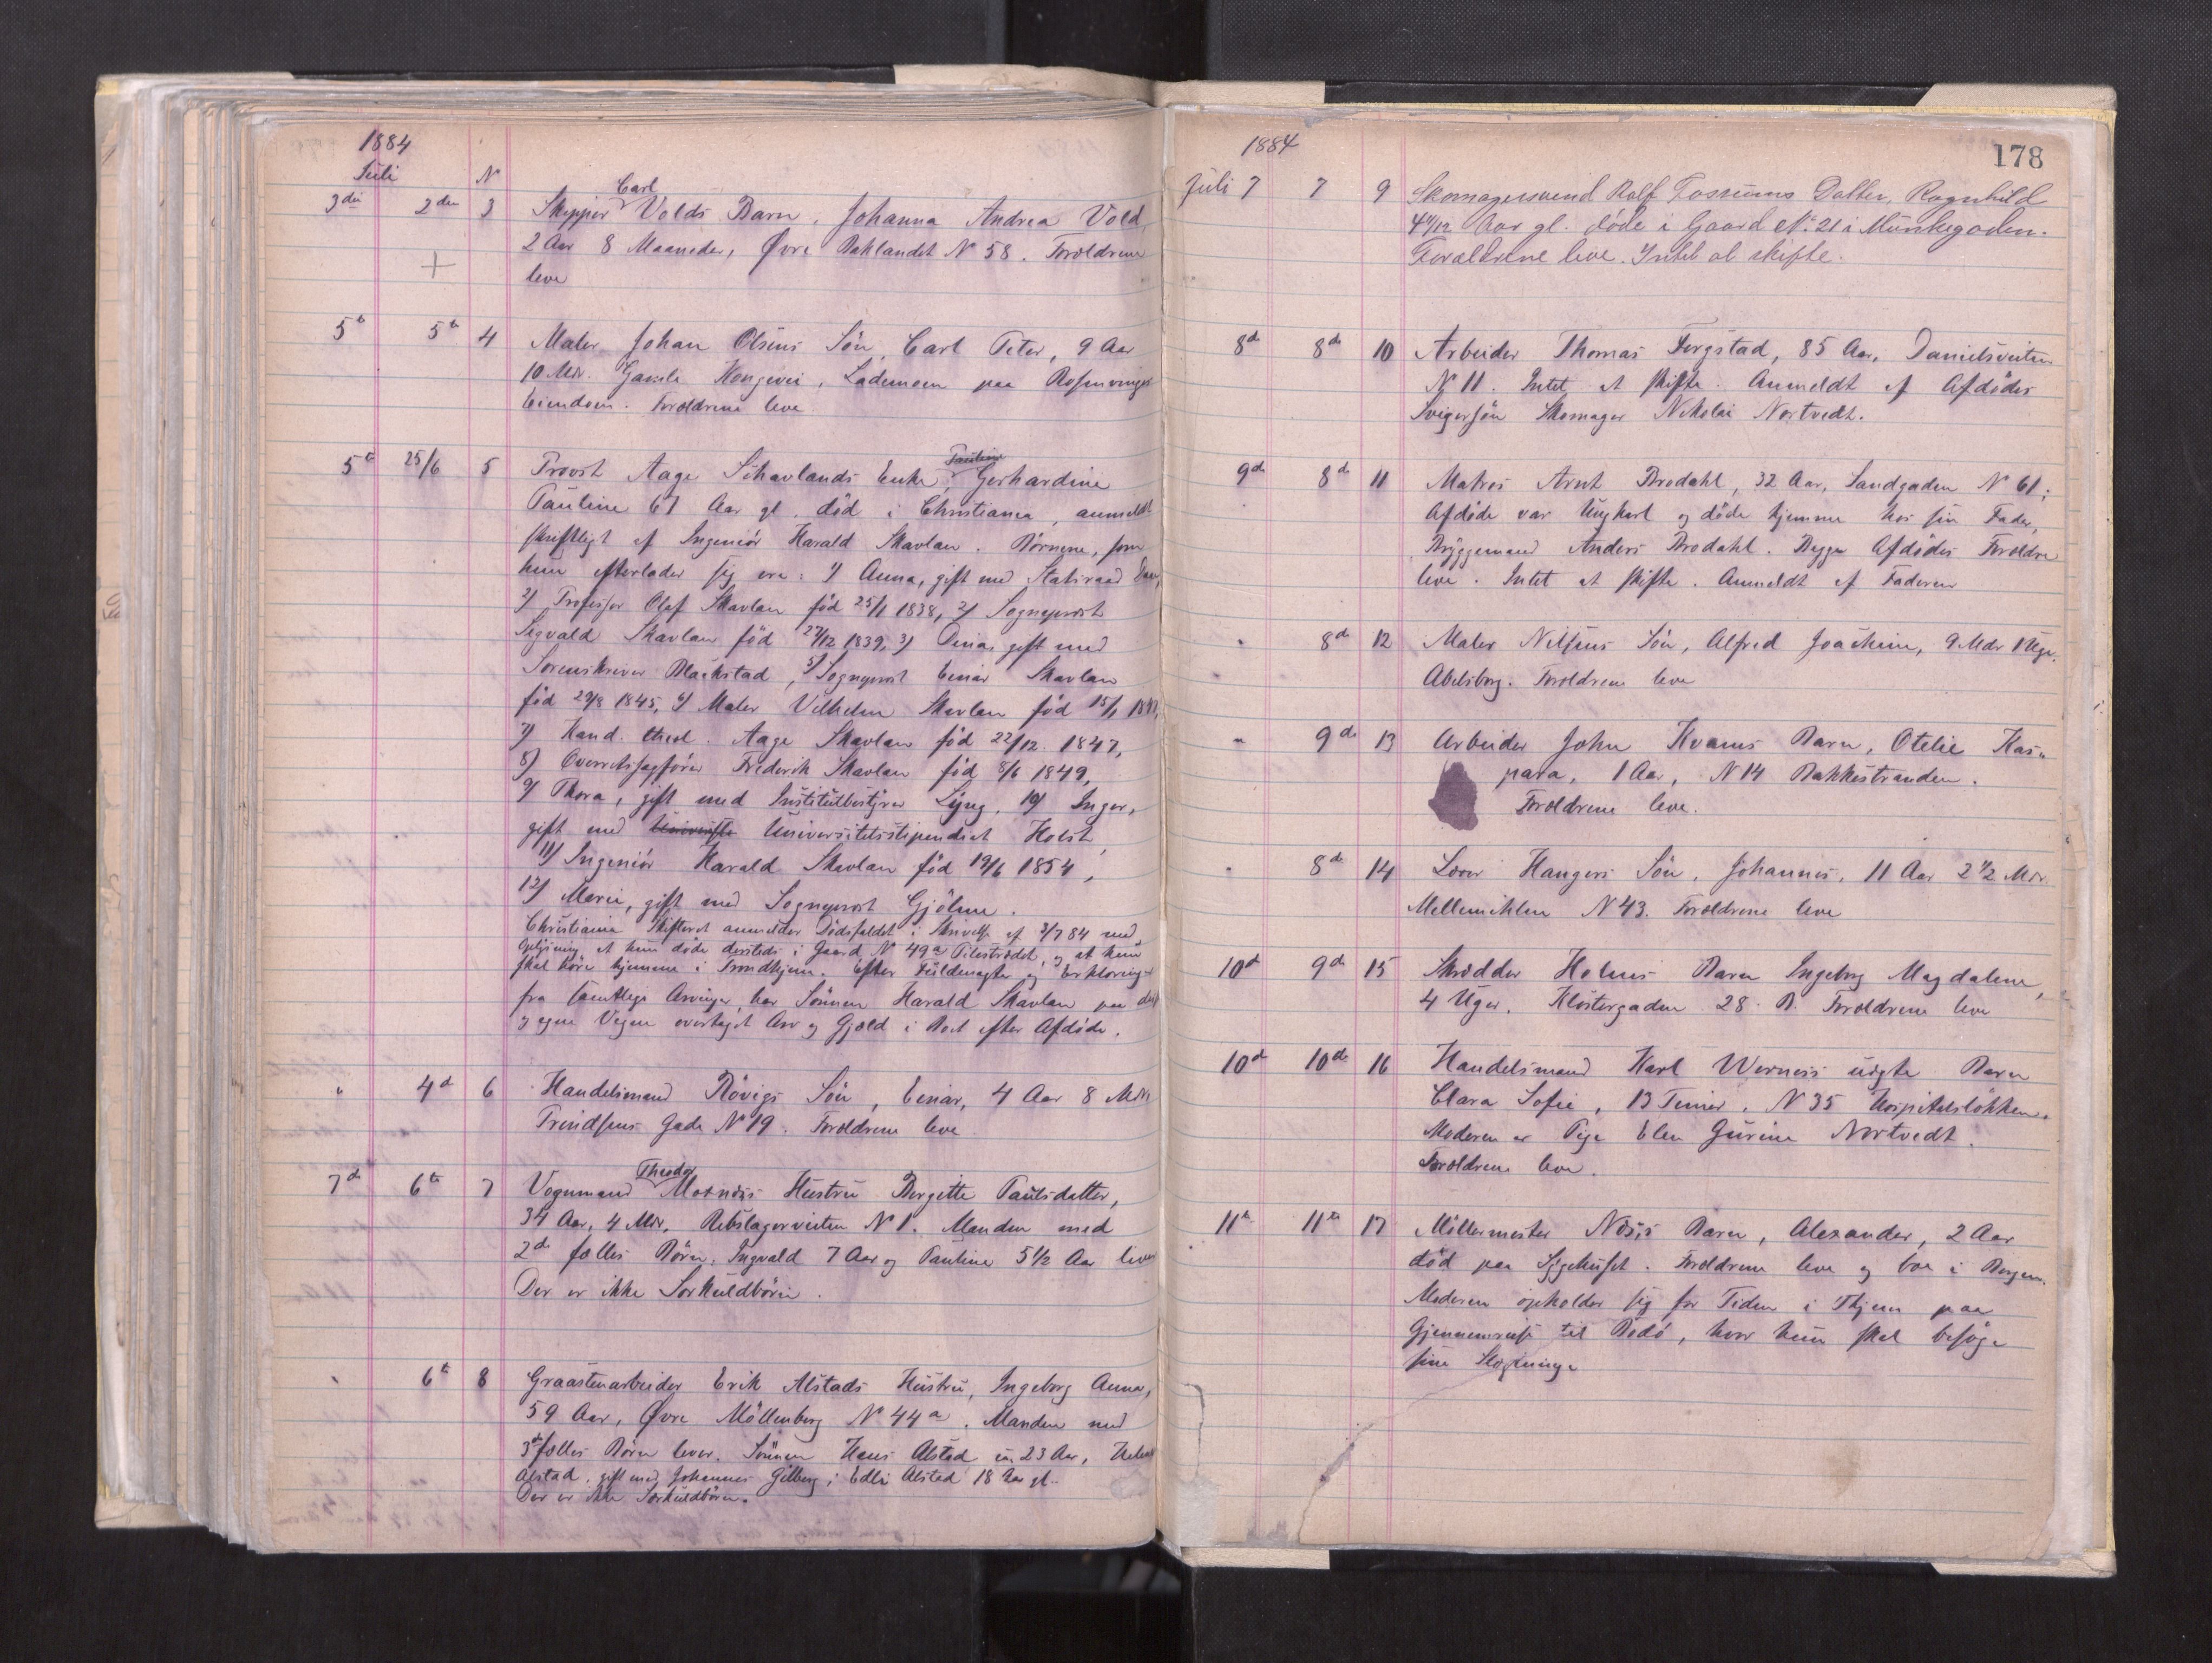 1884
Juli
N
3die 2den 3 Skipper Carl Volds Barn, Johanna Andrea Vold,
2 Aar 8 Maaneder, Øvre Baklandet N 58. Forældrene
leve
5te 5te 4 Maler Johan Olsens Sön, Carl Peter, 9 Aar
10 Mdr. Gamle Kongevei, Lademoen paa Rosenvinges
Eiendom. Forældrene leve
5te 25/6 5 Provst Aage Schavlands Enke, Gerhardine
Pauline 67 Aar gl. död i Christiania, anmeldt
skriftligt af Ingeniör Harald Skavlan. Börnene, som
hun efterlader sig ere: 1) Anna, gift med Statsraad
2) Professor Olaf Skavlan föd 25/1 1838, 2) Sogneprest
Sigvald Skavlan föd 27/12 1839, 3) Dina, gift med
Sorenskriver Blackstad, 5) Sogneprest Einar Skavlan
föd 29/8 1845, 6) Maler Vilhelm Skavlan föd 15/1
7) Kand. theol. Aage Skavlan föd 22/12 1847,
8) Overretssagförer Frederik Skavlan föd 8/6 1849,
9) Thora, gift med Institutbestyrer Lyng, 10) Inger,
gift med Universitetsstipendiat Holst,
11) Ingeniör Harald Skavlan föd 19/6 1854,
12) Marie, gift med Sogneprest Gjölme.
Christiania Skifteret anmelder Dödsfaldet i Skrivelse af 3/7 84 med
Oplysning at hun döde dersteds i Gaard N 49a Pilestrædet, og at hun
skal höre hjemme i Trondhjem. Efter Fuldmagter og Erklæringer
fra samtlige Arvinger har Sönnen Harald Skavlan paa
egne Vegne overtaget Arv og Gjæld i Boet efter Afdöde.
" 4d 6 Handelsmand Rövigs Sön, Einar, 4 Aar 8 Mdr
Trindsens Gade N 19. Forældrene leve
7de 6te 7 Vognmand Theodor Moxnæs Hustru Bergitte Paulsdatter,
34 Aar, 4 Mdr. Rebslagerveiten N 1. Manden med
2de fælles Börn, Ingvald 7 Aar og Pauline 5 1/2 Aar lever
Der er ikke Særkuldbörn.
" 6te 8 Graastenarbeider Erik Alstads Hustru, Ingeborg Anna,
59 Aar, Øvre Möllenberg N 44a. Manden med
3de fælles Börn lever. Sönnen Hans Alstad 23 Aar,
Alstad, gift med Johannes Gilberg; Edli Alstad 18 Aar gl.
Der er ikke Særkuldbörn.
1884
178
Juli 7 7 9 Skomagersvend Rolf Fossums Datter, Ragnhild
4 4/12 Aar gl. döde i Gaard No 21 i Munkegaden.
Forældrene leve. Intet at skifte.
8de 8de 10 Arbeider Thomas Fergstad, 85 Aar, Danielsveiten
N 11. Intet at skifte. Anmeldt af Afdödes
Svigersön Skomager Nikolai Nortvedt.
9de 8de 11 Matros Arnt Brodahl, 32 Aar, Sandgaden N 61;
Afdöde var Ungkarl og döde hjemme hos sin Fader,
Bryggemand Anders Brodahl. Begge Afdödes Forældre
leve. Intet at skifte. Anmeldt af Faderen
" 8de 12 Maler Nilsens Sön, Alfred Joachim, 9 Mdr 1 Uge.
Abelsborg. Forældrene leve
" 9de 13 Arbeider John Kvams Barn, Otelie Kas-
para, 1 Aar, N 14 Bakkestranden.
Forældrene leve.
" 8de 14 Haugers Sön, Johannes, 11 Aar 2 1/2 Mdr.
Mellemihlen N 43. Forældrene leve
10de 9de 15 Skrædder Holmes Barn Ingeborg Magdalene,
4 Uger. Klostergaden 28 B. Forældrene leve
10de 10de 16 Handelsmand Karl Werners uægte Barn
Clara Sofie, 13 Timer. N 35 Hospitalslökken.
Moderen er Pige Elen Gurine Nortvedt.
Forældrene leve.
11te 11te 17 Möllermester Næss Barn, Alexander, 2 Aar
död paa Sygehuset. Forældrene leve og boe i Bergen.
Moderen opholder sig for Tiden i Thjem paa
Gjennemreise til Bodö, hvor hun skal besöge
sine Slægtninge